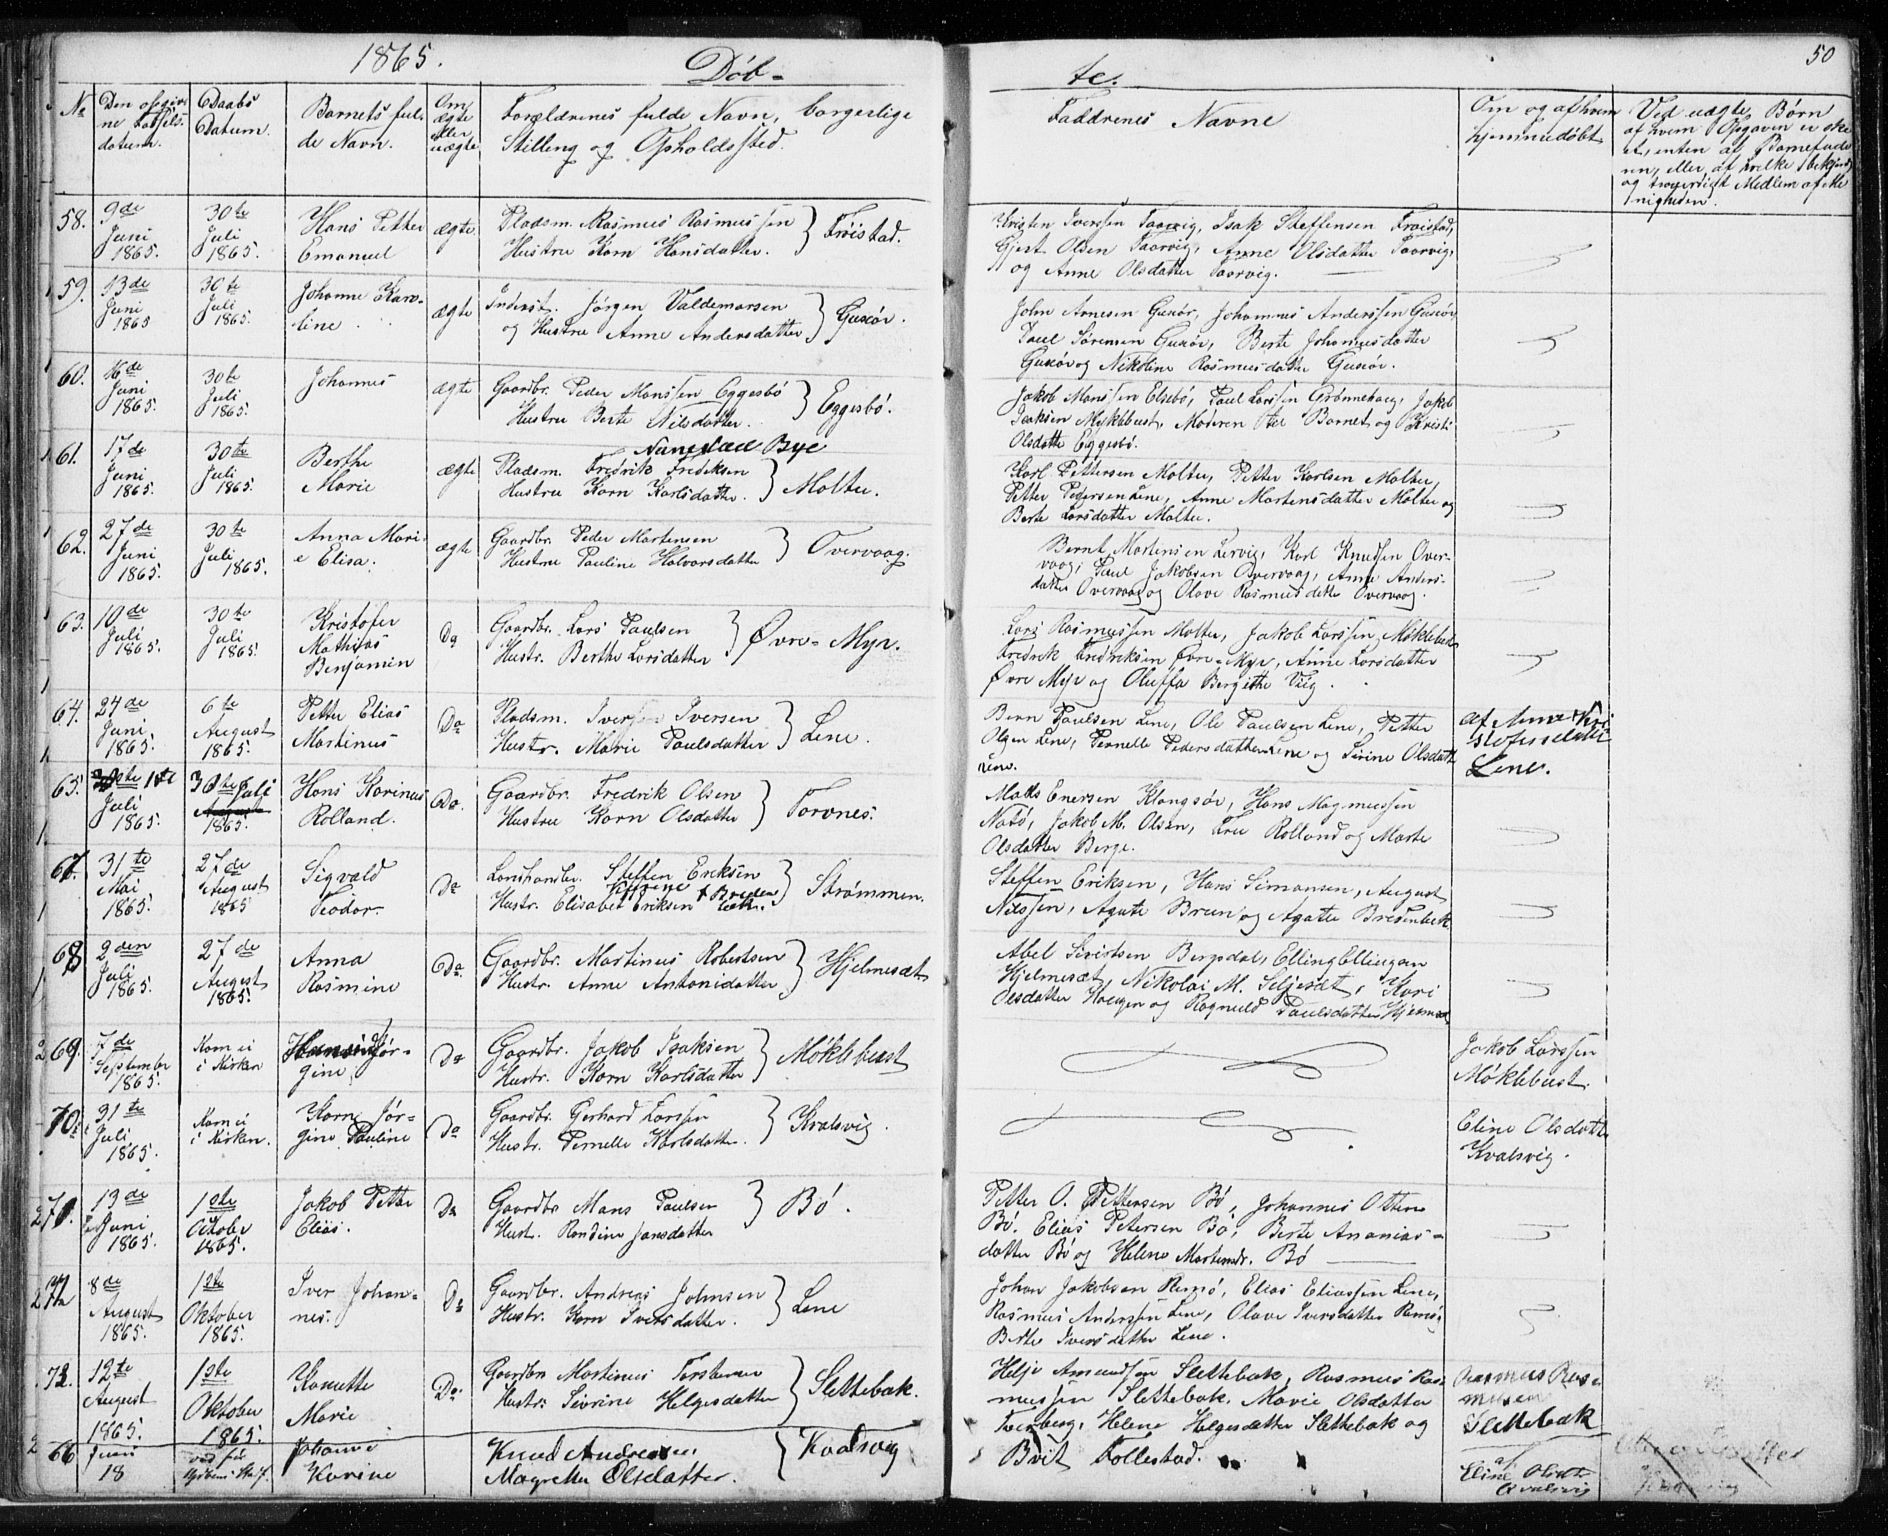 1865.
Døb-
te.
50
No
Den opgivne Fødselsdatum.
Daabs Datum.
Barnets fulde Navn.
Om ægte eller uægte
Forældrenes fulde Navn, borgerlige Stilling og Opholdssted.
Faddrenes Navne
Om og af hvem hjemmedøbt
Ved uægte Børn
58. 9de Juni 1865. 30te Juli 1865. Hans Petter Emanuel ægte Pladsm. Rasmus Rasmussen Hustru Karn Hansdatter. Frøistad.
Kristen Iverssen Taarvig, Isak Steffensen Frøistad,
Gjert Olsen Taarvig, Anne Olsdatter Taarvig,
og Anne Olsdatter Taarvig.
59. 13de Juni 1865 30te Juli 1865. Johanne Karoline ægte Inderst. Jørgen Valdemarsen og Hustru Anne Andersdatter Guxør.
John Arnesen Guxør, Johannes Anderssen Guxør,
Paul Sørensen Guxør, Berte Johannesdatter
Guxør og Nikoline Rasmusdatter Guxør.
60. 16de Juni 1865. 30te Juli 1865. Johannes ægte Gaardbr. Peder Monssen Eggesbø Hustru Berte Nilsdatter. Eggesbø.
Jakob Monssen Elsebø, Paul Larssen Grønnehaug, Jakob
Isaksen Myklebust, Moderen til Barnet og Kristi
Olsdatte Eggesbø.
61. 17de Juni 1865. 30te Juli 1865. Berthe Marie ægte Pladsm. Fredrik Fredriksen Hustru Karn Karlsdatter. Moltu.
Karl Pettersen Moltu, Petter Karlsen Moltu,
Petter Pedersen Lene, Anne Martensdatter Moltu og
Berte Larsdatter Moltu.
62. 27de Juni 1865. 30te Juli 1865. Anna Marie Elisa. ægte Gaardbr. Peder Martensen Hustru Pauline Halvorsdatter Overvaag.
Bernt Martensen Lervig, Karl Knudsen Over-
vaag, Paul Jakobsen Overvaag, Anne Anders-
datter Overvaag og Olave Rasmusdatter Overvaag.
63. 10de Juli 1865. 30te Juli 1865. Kristofer Mathias Benjamin Do Gaardbr. Lars Paulsen Hustr. Berthe Larsdatter Øvre-Myr.
Lars Rasmussen Moltu, Jakob Larssen Møklebust
Fredrik Fredriksen Øvre-Myr, Anne Larsdatter
Øvre Myr og Oluffa Bergithe Vig.
64. 24de Juni 1865. 6te August 1865. Petter Elias Martinus Do Pladsm. Iver Iversen Hustr. Marie Paulsdatter Lene.
Bern Paulsen Lene, Ole Paulsen Lene, Petter
Olsen Lene, Pernelle Pedersdatter Lene og Sivine Olsdatter
Lene.
af Anne Kri
Lene.
65. 1te Juli 1865. 30te Juli 1865. Hans Karinus Rolland. Do. Gaardbr. Fredrik Olsen Hustru Karn Olsdatter Torvnes.
Mads Enersen Klongsør, Hans Magnussen
Notø, Jakob M. Olsen, Fru Rolland og Marte
Olsdatter Berge.
67. 31te Mai 1865. 27de August 1865 Sigvald Teodor. Do Landhandler. Steffen Eriksen Hustr. Elisabet Eriksen Strømmen.
Steffen Eriksen, Hans Simonsen, August
Nilssen, Agate Bruun og Agatha Bredenbek
68 2den Juli 1865. 27de August 1865. Anna Rasmine Do Gaardbr. Martinus Robertsen Hustr. Anne Antonidatter Hjelmesæt
Abel Sivertsen Bergsdal, Elling Ellingsen
Hjelmesæt, Nikolai M. Siljesæt, Kari
Olsdatter Haugen og Ragnild Paulsdatter Hjelmesæt
69. 7de September 1865. Kom ei i Kirken Jørgine Do Gaardbr. Jakob Isaksen Hustr. Karn Karlsdatter Møklebust
Jakob Larssen
Møklebust.
70. 31te Juli 1865. Kom ei i Kirken. Karn Jørgine Pauline Do Gaardbr. Gerhard Larssen Hustr. Pernelle Karlsdatter. Kvalsvig.
Eline Olsdatter
Kvalsvig.
71. 13de Juni 1865. 1ste Oktober 1865. Jakob Petter Elias. Do Gaardbr. Mons Paulsen Hust. Randine Jansdatter Bø.
Petter O. Pettersen Bø, Johannes Ottin
Bø. Elias Petersen Bø, Berte Ananias-
datter Bø og Helene Martensdr. Bø
72 8de August 1865. 1ste Oktober 1865. Iver Johannes. Do Gaardbr. Andreas Johnsen Hustr. Karn Iversdatter. Lene
Johan Jakobsen Remø, Elias Eliassen Lene,
Rasmus Anderssen Lene, Olave Iversdatter Remø,
Berte Iversdatter Lene.
73. 12te August 1865. 1ste Oktober 1865. Konette Marie Do. Gaardbr Martinus Torstensen Hustr. Sivrine Helgesdatter Slettebak.
Helje Amundsen Slettebak, Rasmus Ras-
mussen Slettebak, Marie Olsdatter
Tverberg, Helene Helgesdatter Slettebak og
Brit Follestad.
Rasmus Ras-
mussen
Slettebak
66 Juni 18 Johanne Karine Knud Andreasen Magrethe Olsdatter. Kvalsvig
af
Eline Olsdtr
Kvalsvig